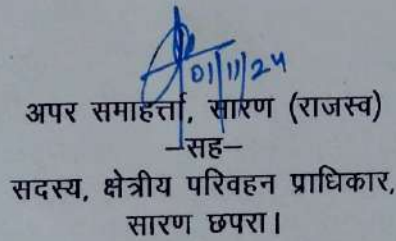 01/11/24
अपर समाहर्त्ता, सारण (राजस्व)
–सह–
सदस्य, क्षेत्रीय परिवहन प्राधिकार,
सारण छपरा।